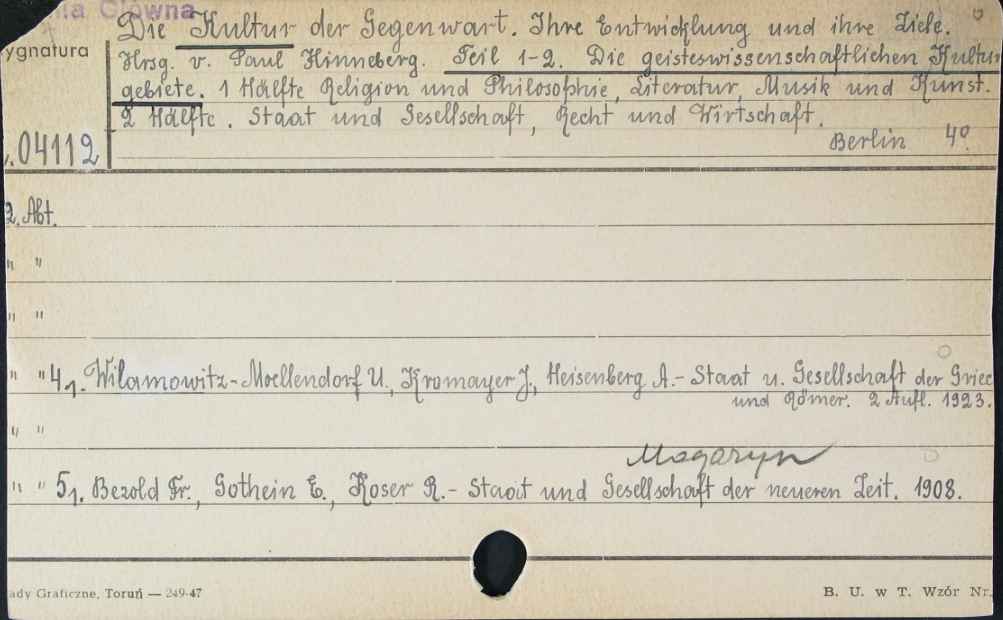 Główna
Die Kultur der Gegenwart. Ihre Entwicklung und ihre Ziele.
ygnatura
Hrsg. v. Paul Hinneberg. Teil 1-2. Die geisteswissenschaftlichen Kultur
gebiete. 1 Hälfte Religion und Philosophie, Literatur, Musik und Kunst.
2 Hälfte. Staat und Gesellschaft, Recht und Wirtschaft.
04112
Berlin 4º
2. Abt.
" "
" "
" " 4₁. Wilamowitz-Moellendorf U., Kromayer J., Heisenberg A.- Staat u. Gesellschaft der Griec
und Römer. 2 Aufl. 1923.
" "
Magazyn
" " 5₁. Bezold Fr., Gothein E., Koser R.- Staat und Gesellschaft der neueren Zeit. 1908.
ady Graficzne, Toruń — 249-47
B. U. w T. Wzór Nr.